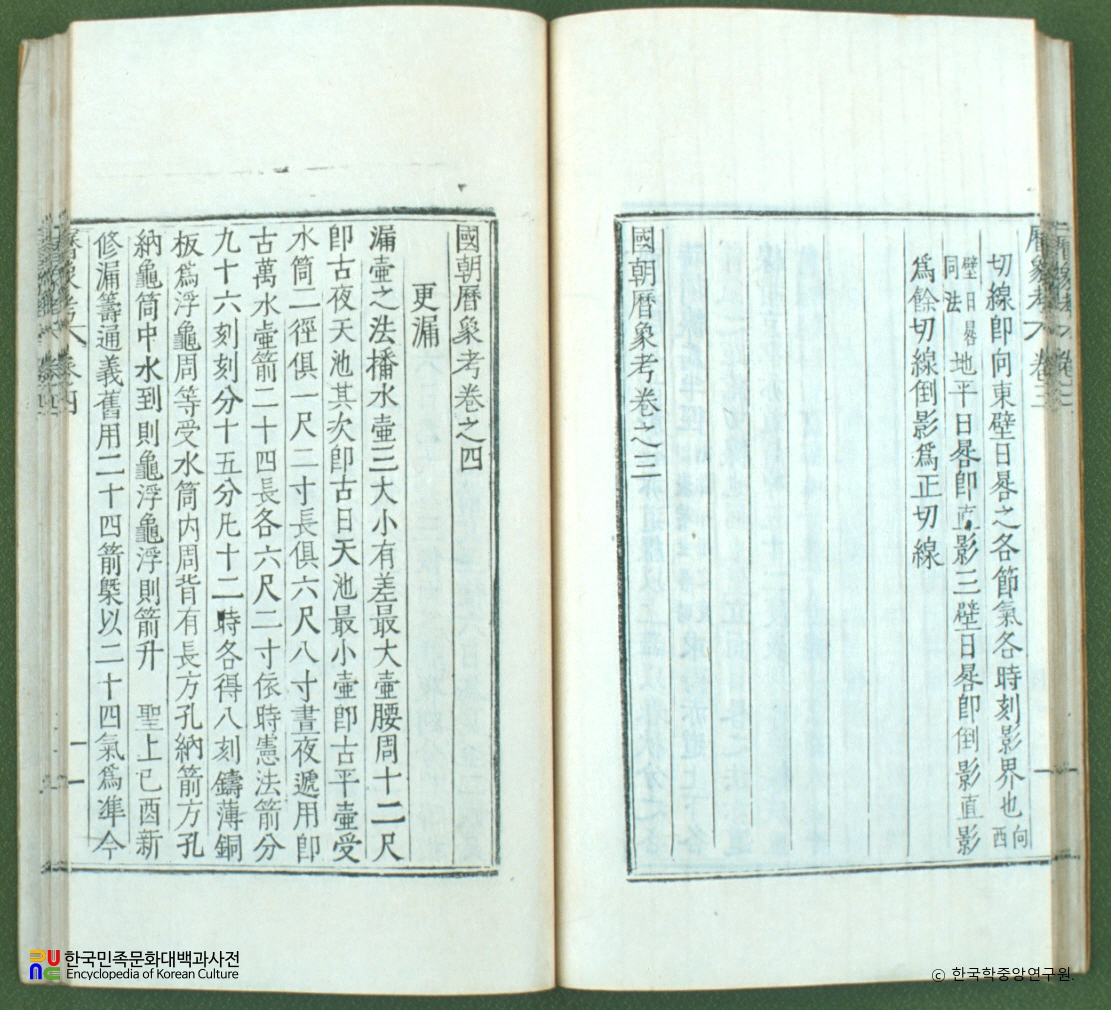 切線即向東壁日晷之各節氣各時刻影界也向西
壁日晷同法地平日晷即直影三壁日晷即倒影直影
爲餘切線倒影爲正切線
國朝曆象考卷之三
國朝曆象考卷之四
更漏
漏壷之法播水壷三大小有差最大壷腰周十二尺
即古夜天池其次即古日天池最小壷即古平壷受
水筒二徑俱一尺二寸長俱六尺八寸晝夜遞用即
古萬水壷箭二十四長各六尺二寸依時憲法箭分
九十六刻刻分十五分凡十二時各得八刻鑄薄銅
板爲浮龜周等受水筒内周背有長方孔納箭方孔
納龜筒中水到則龜浮龜浮則箭升 聖上已酉新
修漏籌通義舊用二十四箭槩以二十四氣爲準今
한국민족문화대백과사전
Encyclopedia of Korean Culture
© 한국학중앙연구원.